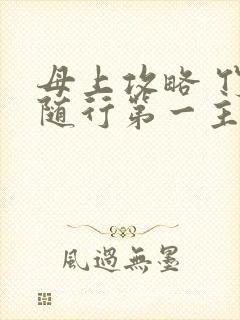 母上攻略
随行第一主
風過無墨